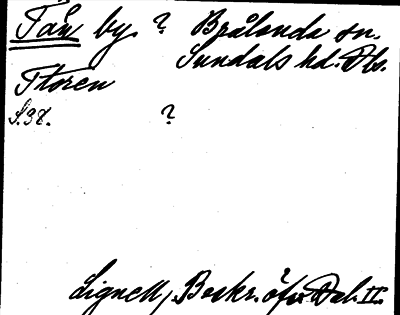 Tån by. ? Brålanda sn.
Sundals hd. Dls.
Floren
S. 38. ?
Lignell, Beskr. öfver Dal. II.